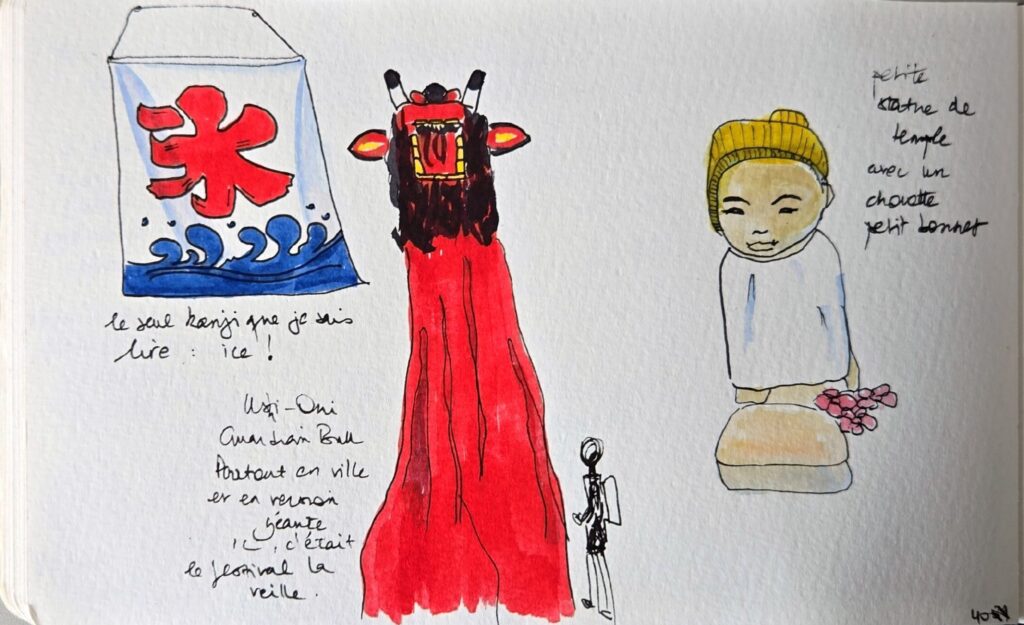 氷
le seul kanji que je sais
lire : ice !
Ushi-Oni
Guardian Bull
Partout en ville
et en version
géante
ici, c'était
le festival la
veille.
petite
statue de
temple
avec un
chouette
petit bonnet